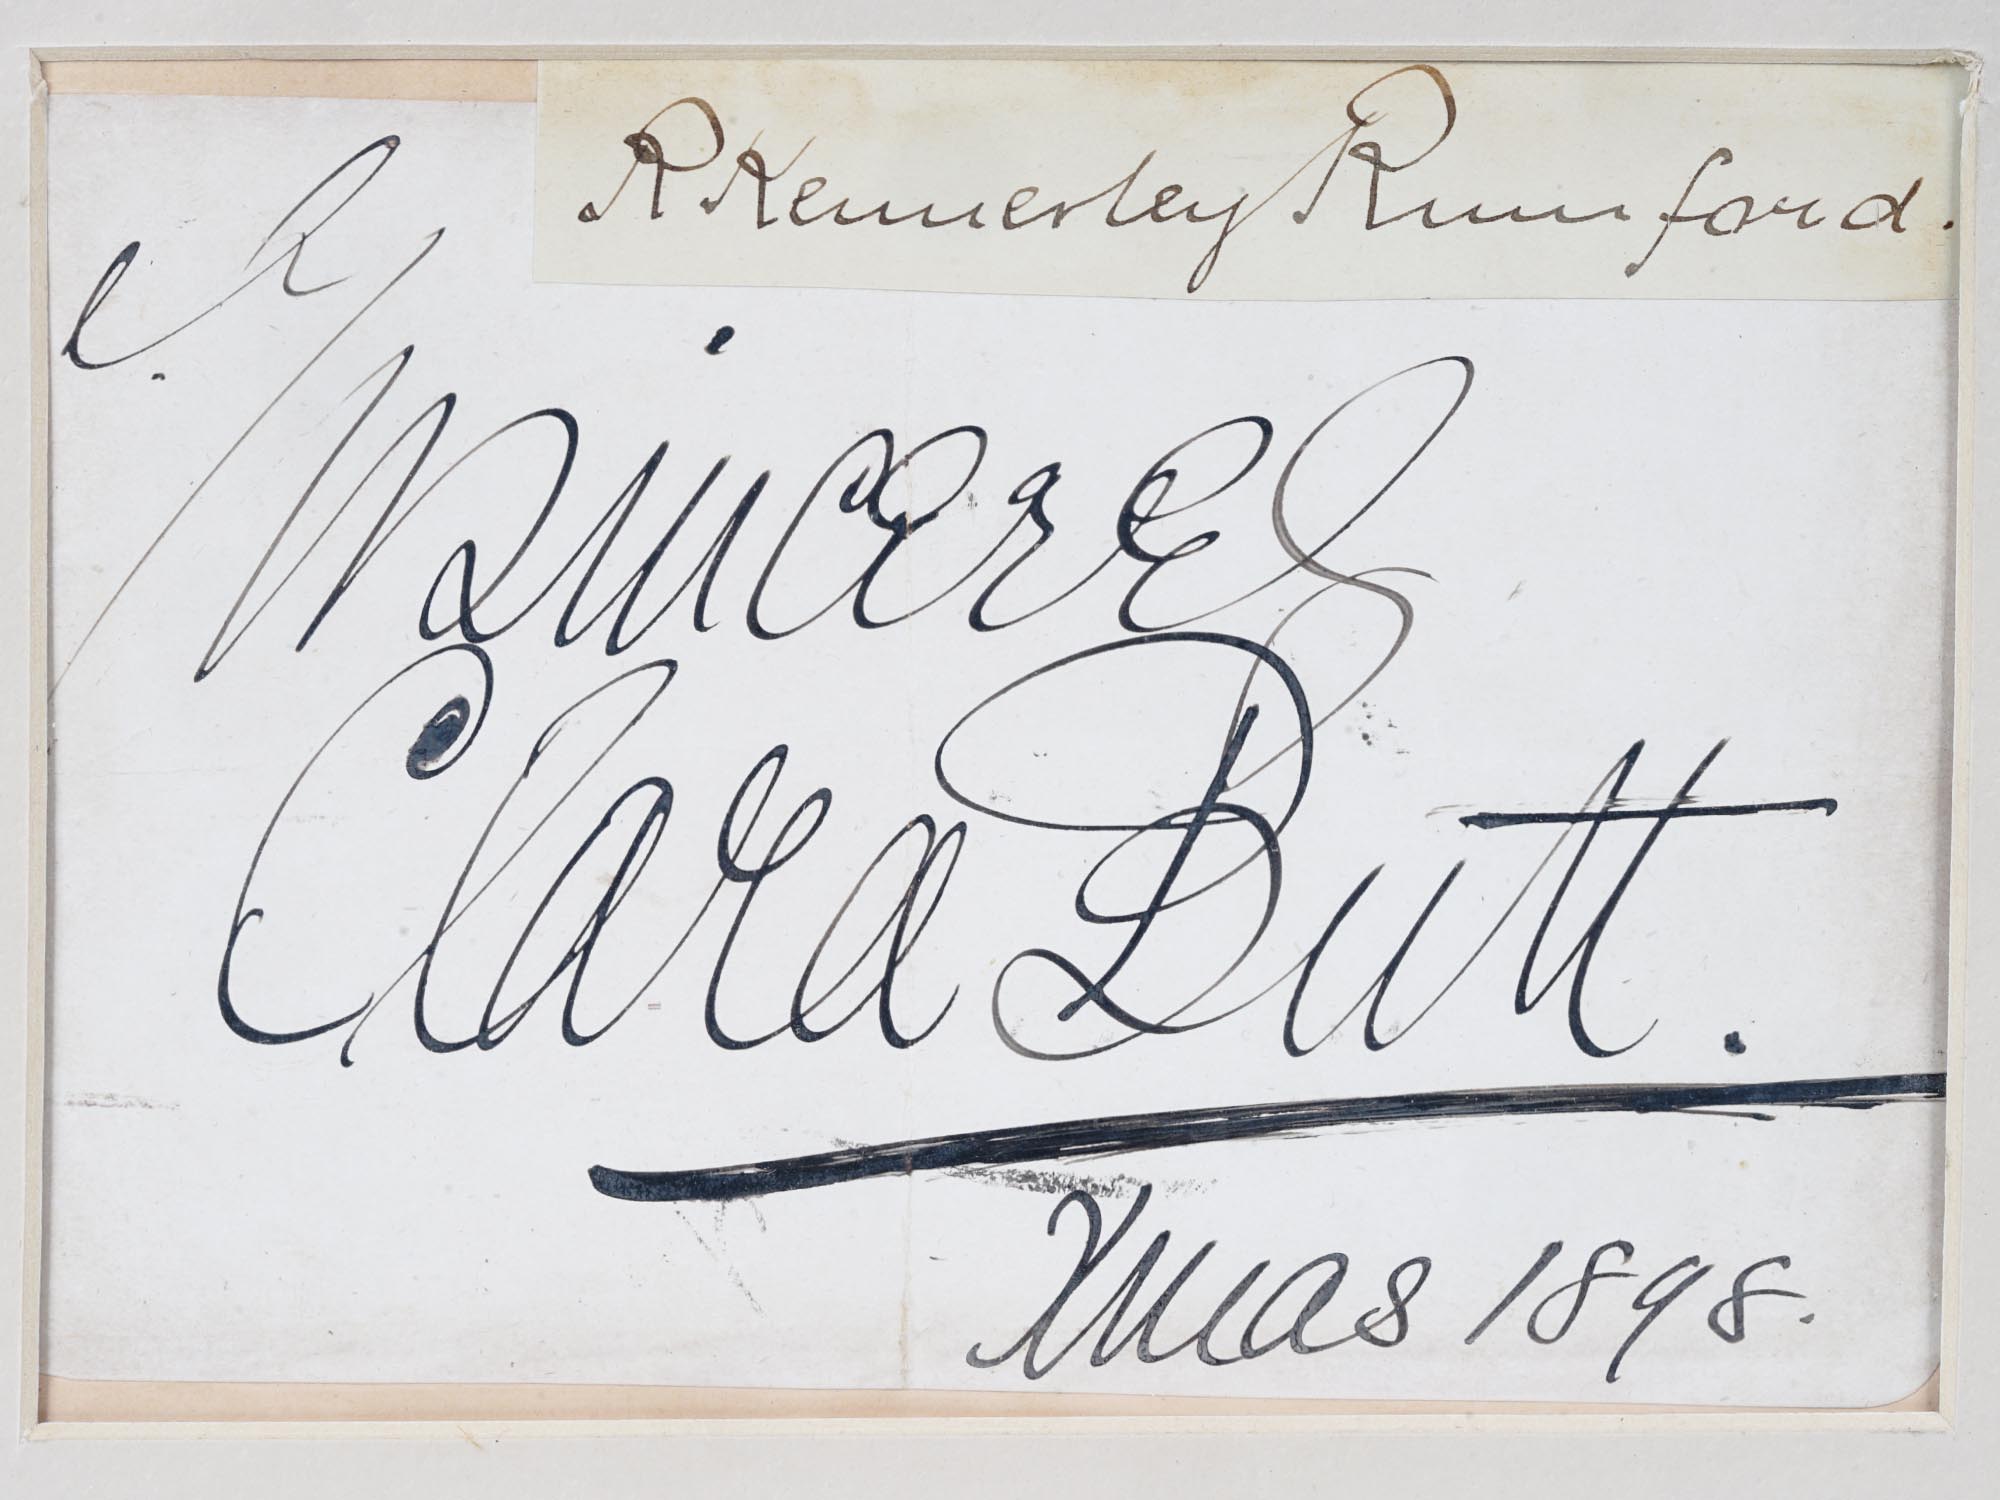 R Kennerley Rumford.
Sincerely
Clara Butt.
Xmas 1898.